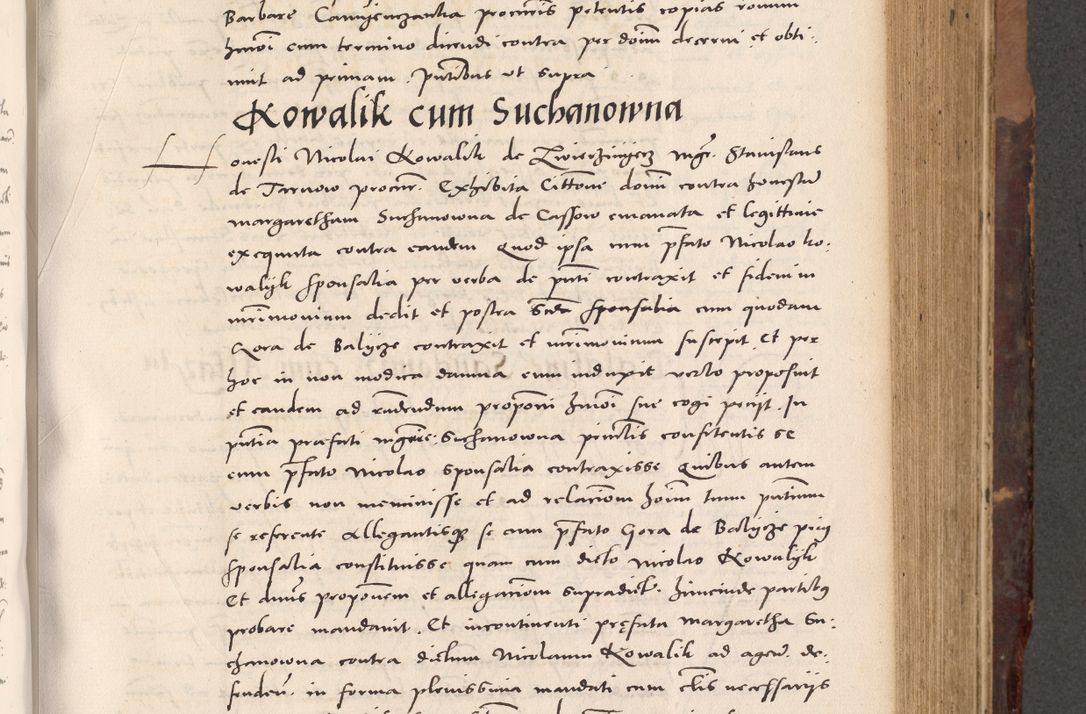 Barbare Camyenczanka procuris petentis copias ronum
hmoi cum termino dicendi contra per doim decerni et obti-
nuit ad primam. Pntibus ut supra
Kowalik cum Suchanowna
Honesti Nicolai Kowalik de Zwierzinyecz mgr. Stanislaus
de Tarnow procur. Exhibita Cittone domi contra honestam
margaretham Suchanowna de Cassow emanata et legittime
exequuta contra eandem Quod ipsa cum prfato Nicolao ko-
walyk sponsalia per verba de pnti contraxit et fidem in
mrimonium dedit et postea scda sponsalia cum quodam
Gora de Balycze contraxit et mrimonium suscepit Et per
hoc in non modica damna eum induxit verbo proposuit
et eandem ad rndendum proponi hmoi sue cogi peciit. In
pntia præfati mgre. Suchanowna principlis confitentis se
cum prfato Nicolao sponsalia contraxisse Quibus autem
verbis non meminisse et ad relacionem hoim tunc pntium
se referente Allegantisque se cum prfato Gora de Balycze prius
sponsalia constituisse quam cum dicto Nicolao Kowalyk
Et dnus proponem et allegacionem supradict. hincinde partibus
probare mandavit. Et incontinenti pręfata Margaretha Su-
chanowna contra dictum Nicolaum Kowalik ad agen. de-
fenden. in forma plenissima mandati cum clis necessariis